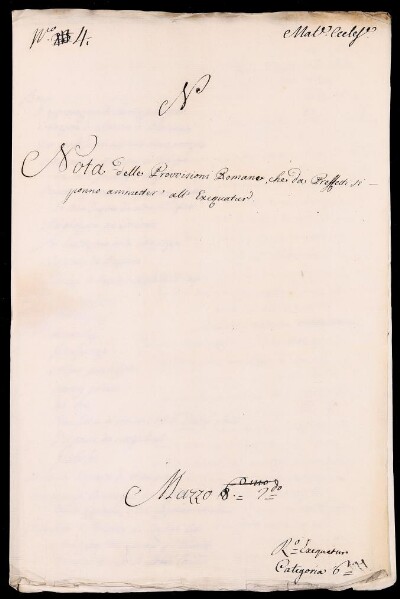 N.ro 4.
Mat.e Eccles.e
N
Nota delle Provvisioni Romane, che da Prefetti si
ponno ammetter all' Exequatur
Mazzo 2.do
R.o Exequatur
Categoria 6.